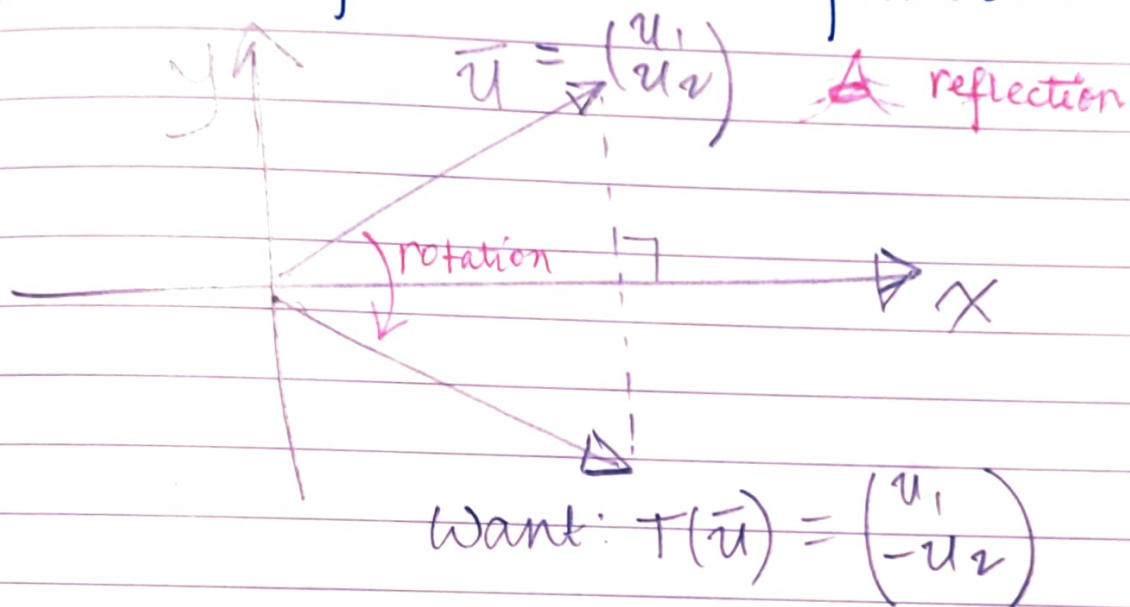 y
ū = (u₁
u₂)
reflection
rotation
x
Want: T(ū) = (u₁
-u₂)